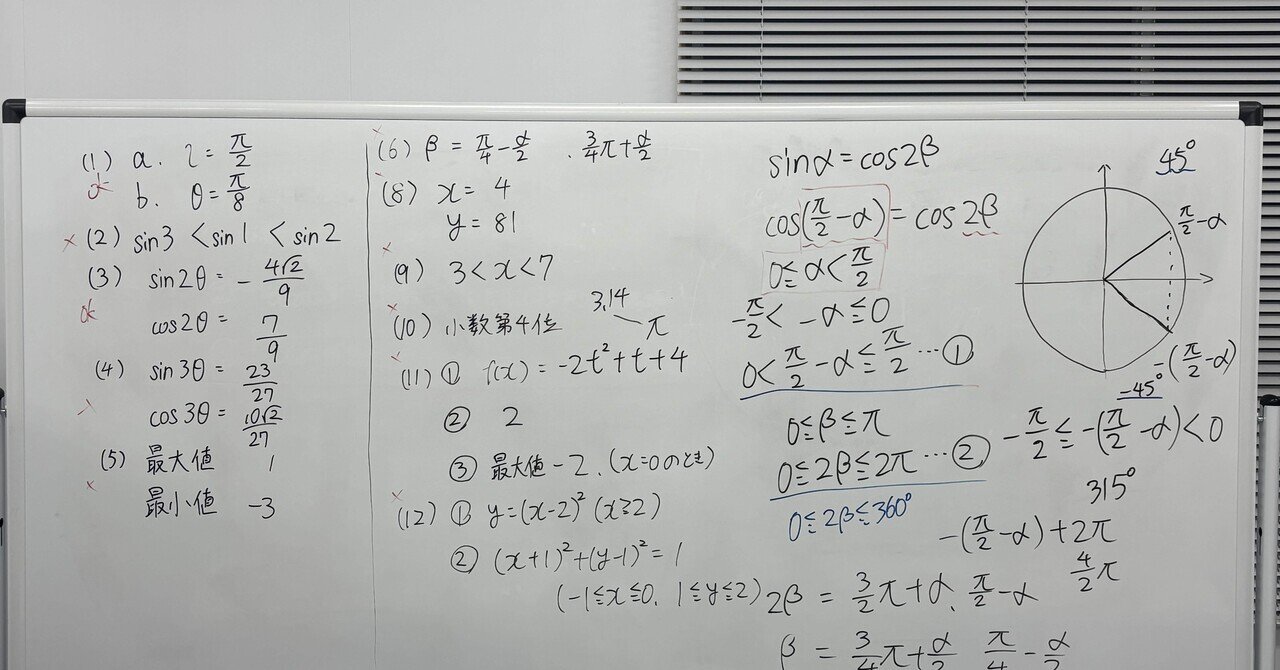 (1) a. l = π/2
ok b. θ = π/8
× (2) sin3 < sin1 < sin2
(3) sin2θ = - 4√2/9
ok cos2θ = 7/9
(4) sin3θ = 23/27
× cos3θ = 10√2/27
(5) 最大値 1
× 最小値 -3
× (6) β = π/4 - α/2 , 3/4π + α/2
× (8) x = 4
y = 81
× (9) 3 < x < 7
× (10) 小数第4位 3.14 π
× (11) ① f(x) = -2t²+t+4
② 2
③ 最大値 -2. (x=0のとき)
× (12) ① y=(x-2)² (x≧2)
② (x+1)²+(y-1)² = 1
(-1≦x≦0, 1≦y≦2)
sinα = cos2β
cos(π/2 - α) = cos2β
0≦α<π/2
-π/2 < -α ≦ 0
0 < π/2 - α ≦ π/2 … ①
0≦β≦π
0≦2β≦2π … ②
0≦2β≦360°
45°
π/2 - α
-(π/2 - α)
-45°
-π/2 ≦ -(π/2 - α) < 0
315°
-(π/2 - α) + 2π
4/2π
2β = 3/2π + α, π/2 - α
β = 3/4π + α/2 π/4 - α/2